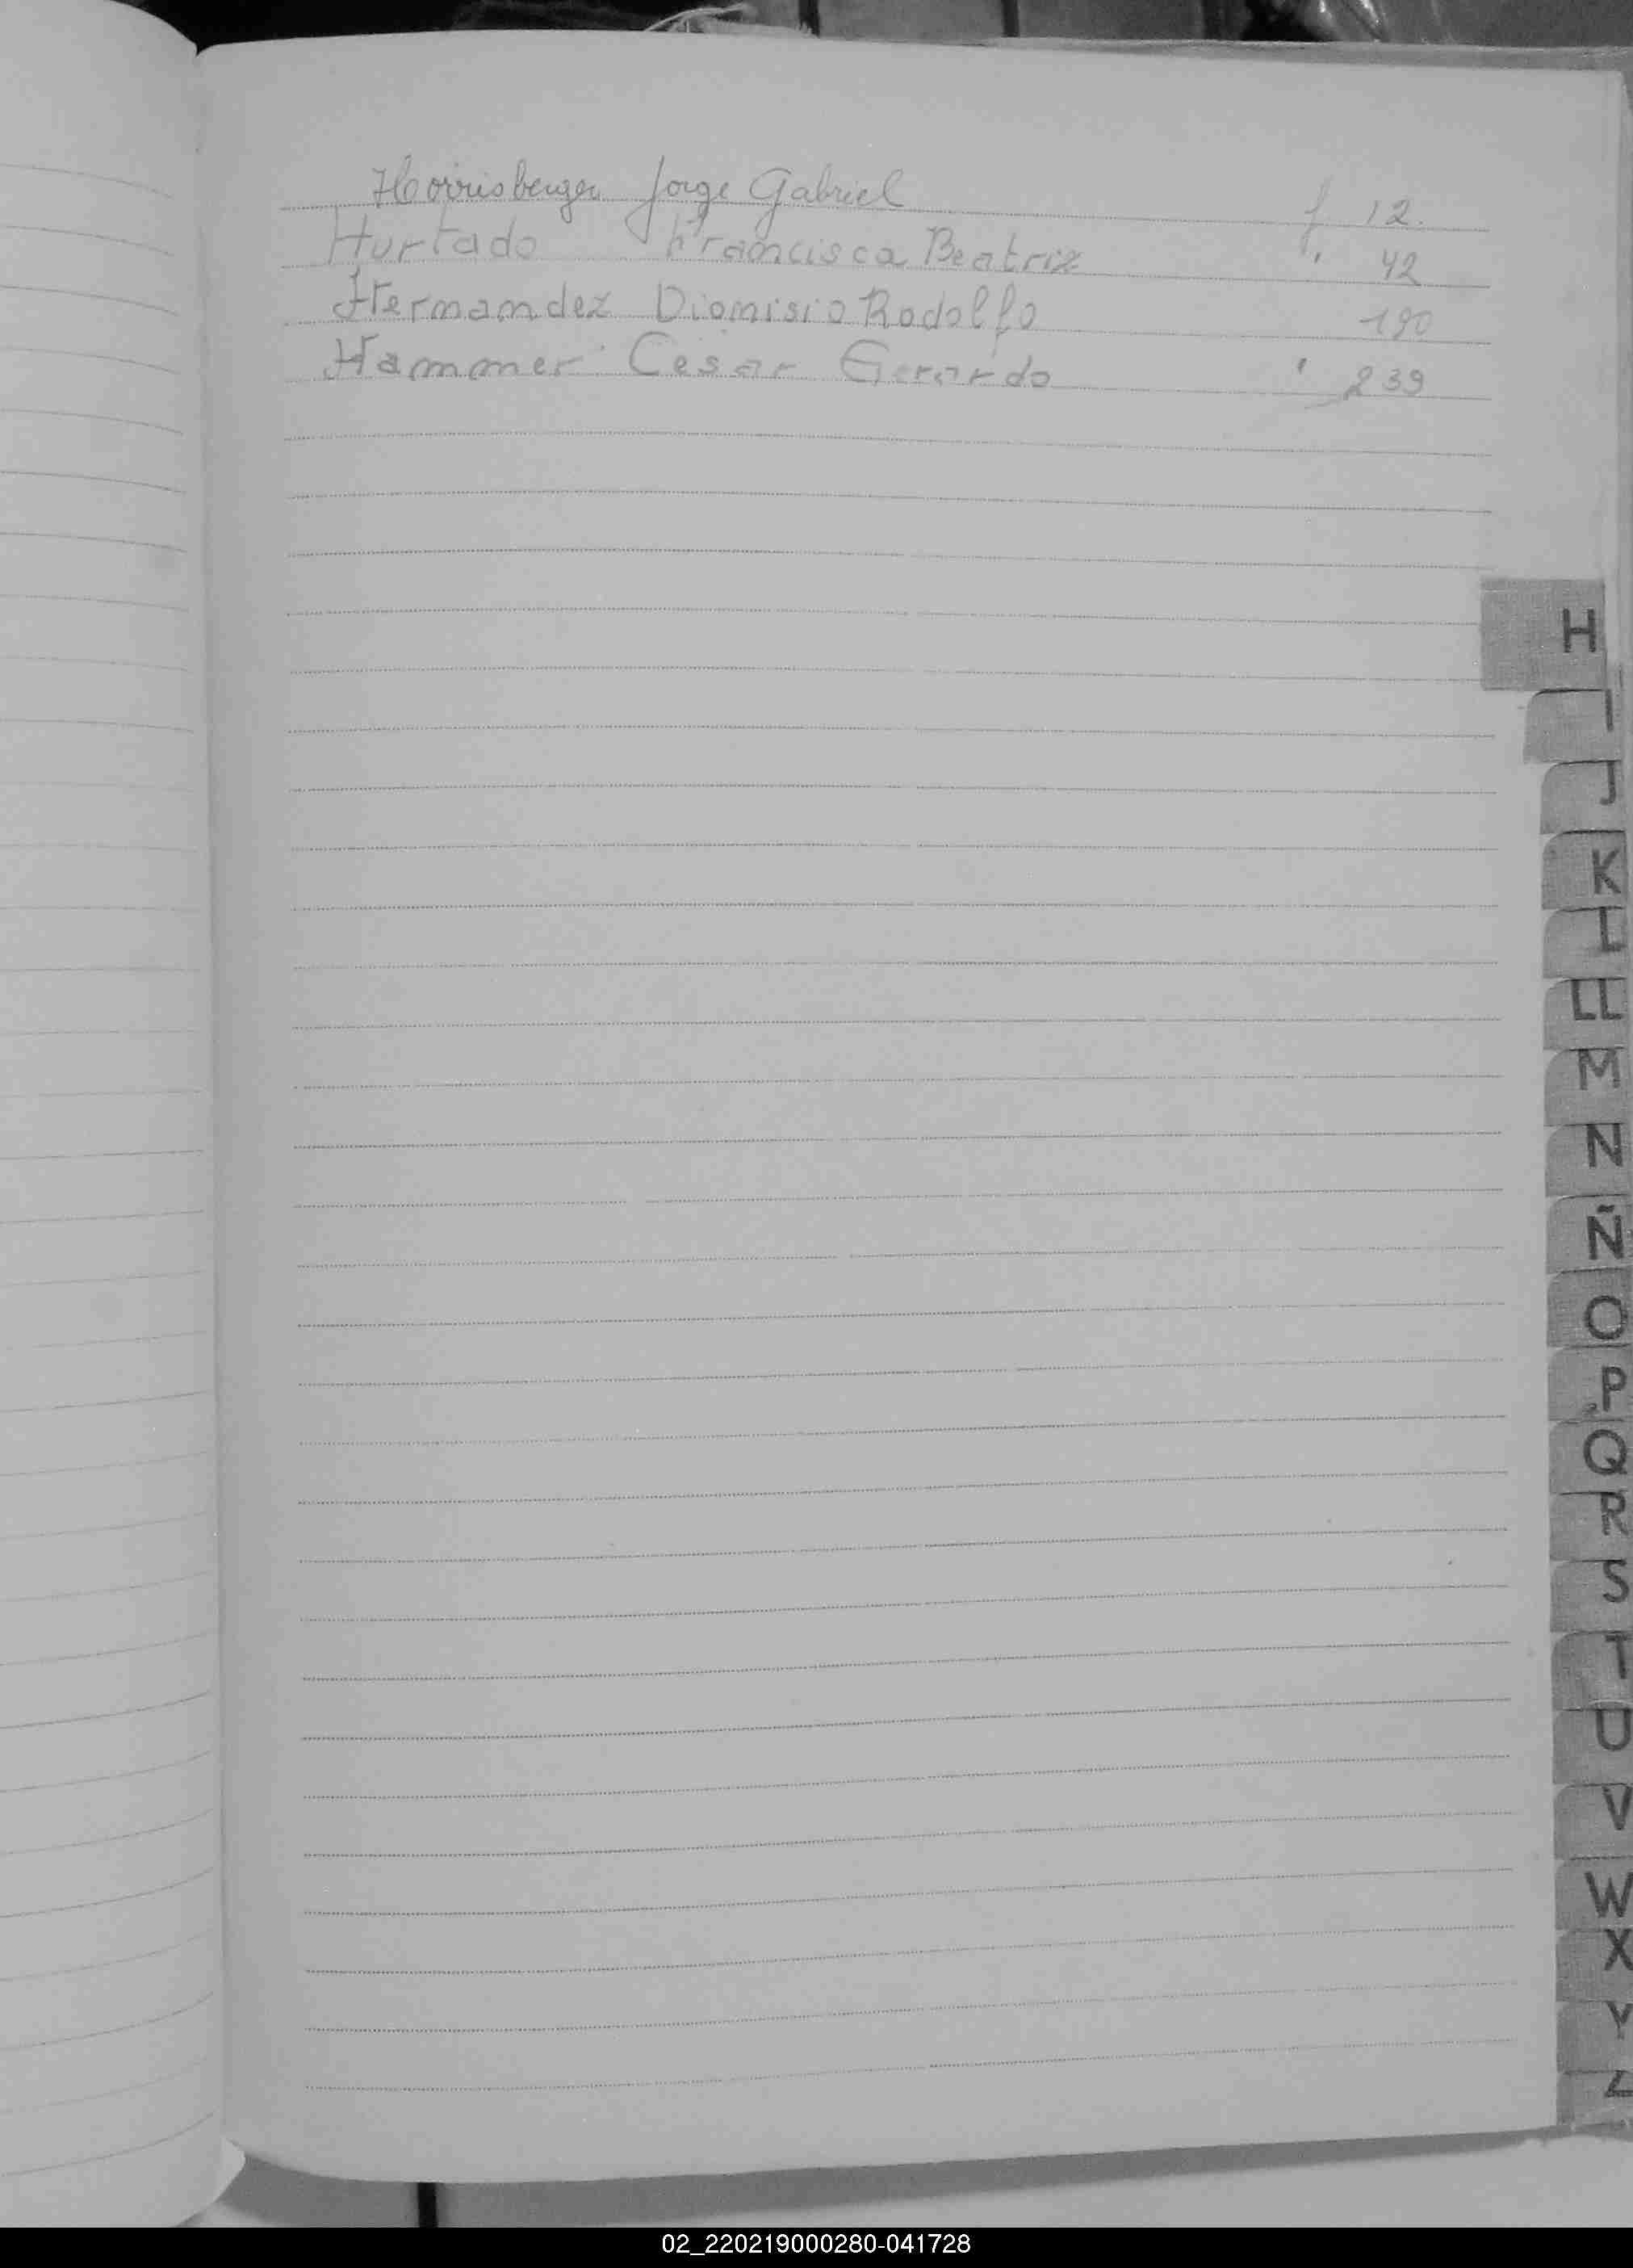 Jorge Gabriel f 12.
Hurtado Francisca Beatriz " 42
Hernandez Dionisio Rodolfo 190
Hammer Cesar Gerardo " 239
H
I
J
K
L
LL
M
N
Ñ
O
P
Q
R
S
T
U
V
W
X
Y
Z
02_220219000280-041728